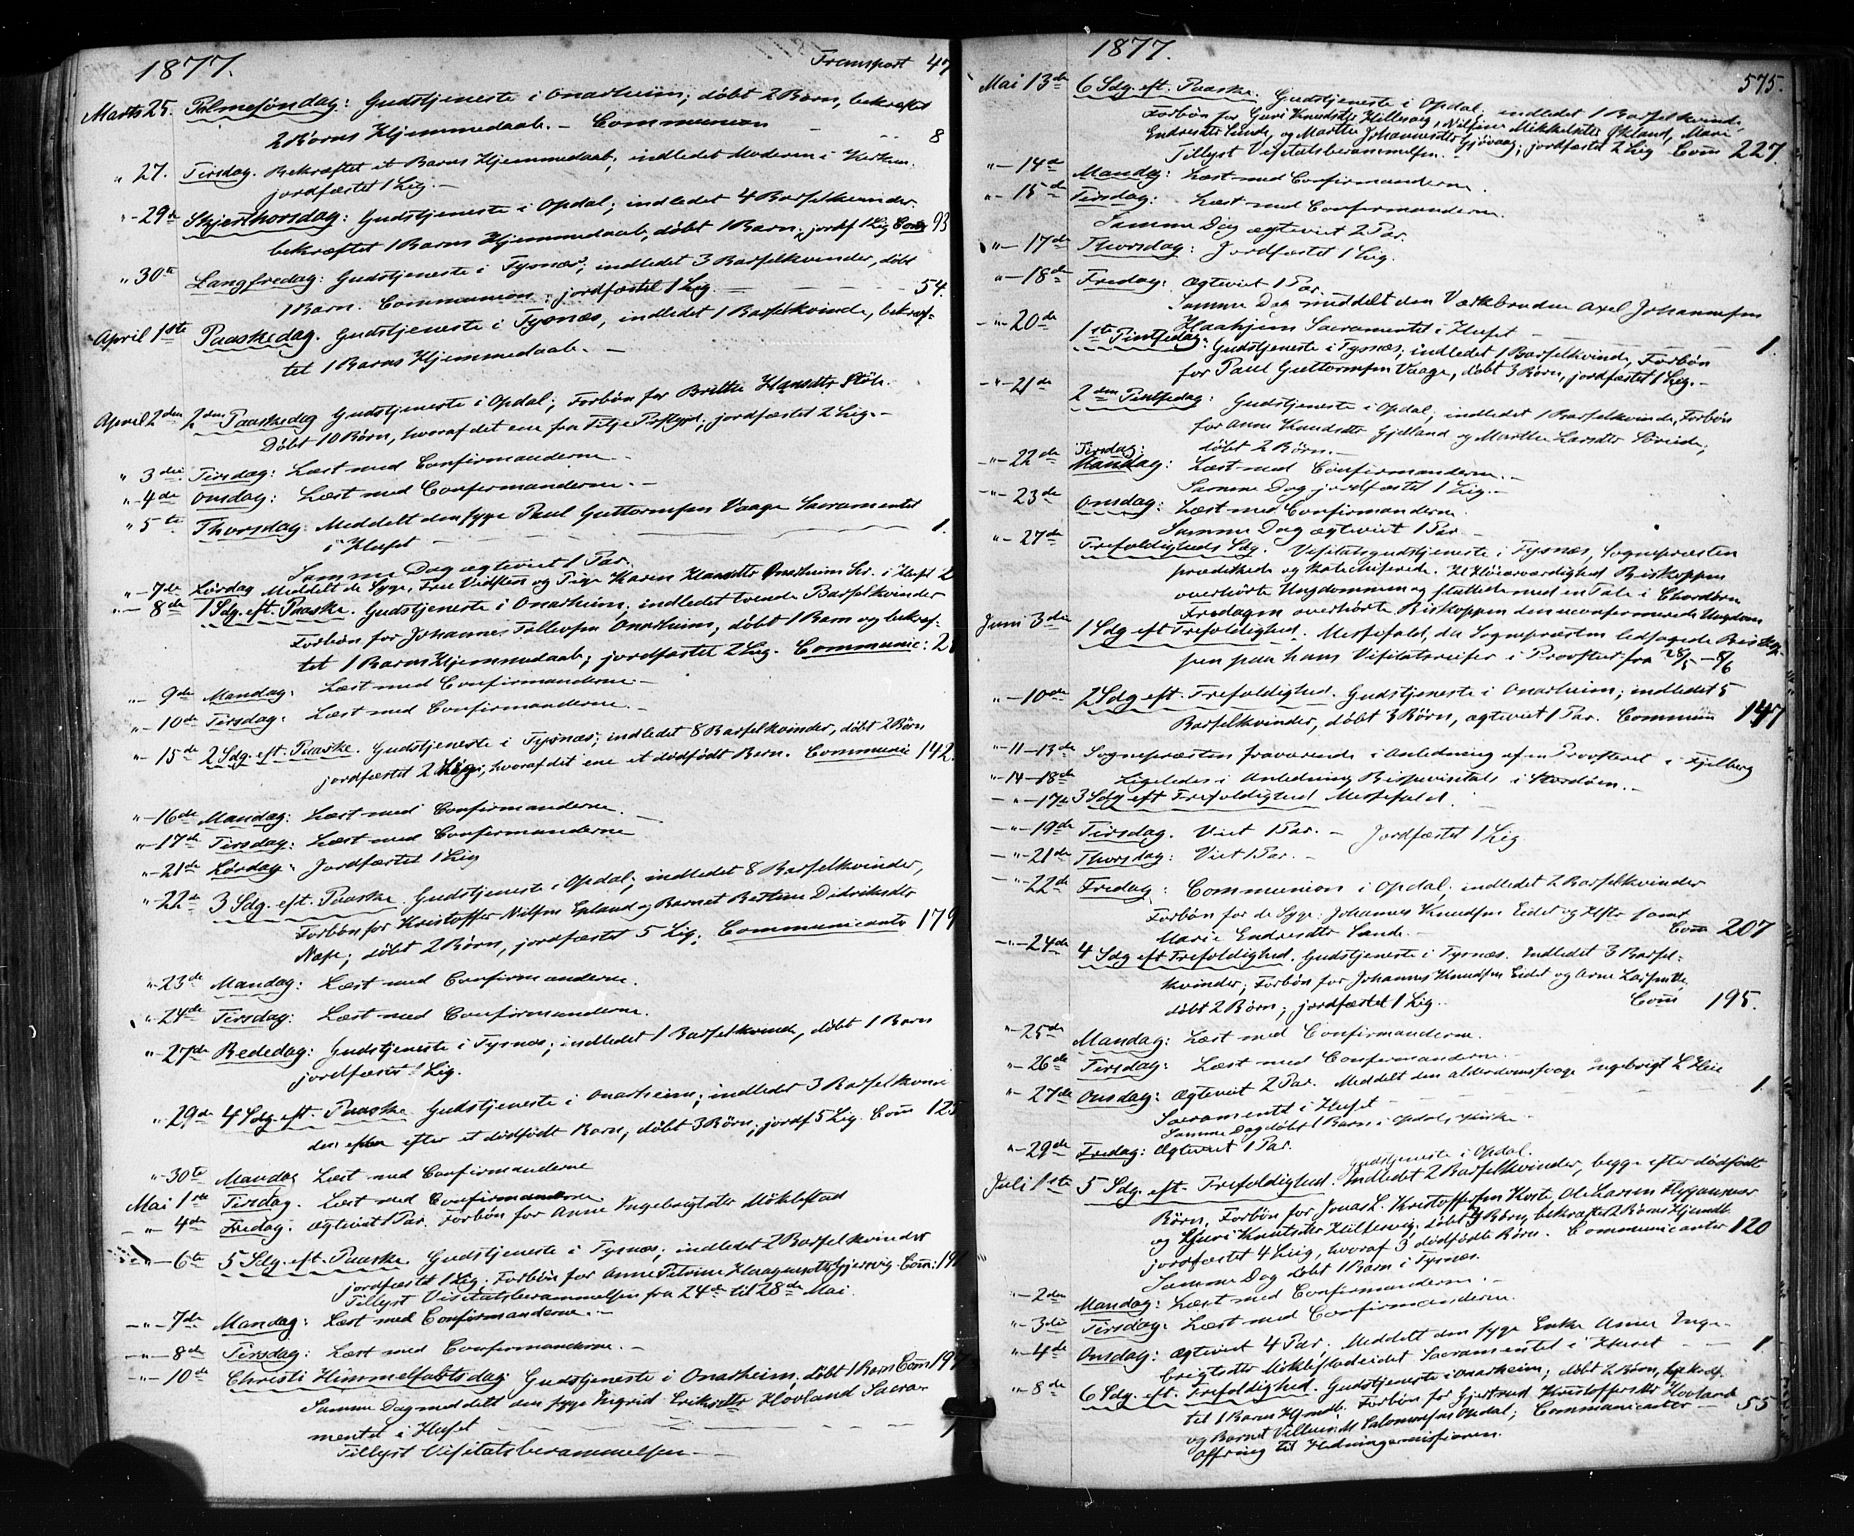 1877. Transport 47
Marts 25. Palmesøndag: Gudstjeneste i Onarheim; døbt 2 Børn, bekræftet
2 Børns Hjemmedaab. — Communion 8
" 27. Tirsdag. Bekræftet et Barns Hjemmedaab, indledet Moderen i Kirken.
jordfæstet 1 Lig. —
" - 29de Skjærthorsdag: Gudstjeneste i Opdal; indledet 4 Barselkvinder.
bekræftet 1 Barns Hjemmedaab, døbt 1 Barn, jordf 1 Lig Com 93
" 30te Langfredag: Gudstjeneste i Tysnæs; indledet 3 Barselkvinder, døbt
1 Barn. Communion; jordfæstet 1 Lig. — 54.
April 1ste Paaskedag. Gudstjeneste i Tysnæs, indledet 1 Barselkvinde, bekræf-
tet 1 Barns Hjemmedaab. —
April 2den 2den Paaskedag Gudstjeneste i Opdal; Forbøn for Brithe Hansdtr Støle.
Døbt 10 Børn, hvoraf det ene fra Fitje Præstgjeld, jordfæstet 2 Lig. —
" 3die Tirsdag: Læst med Confirmanderne —
" - 4de Onsdag: Læst med Confirmanderne. —
" 5te Thorsdag: Meddelt den syge Paul Guttormsen Vaage Sacramentet
i Huset — 1.
Samme Dag ægteviet 1 Par.
" - 7de Lørdag Meddelt de Syge, Frue Vidsten og Pige Karen Hansdtr Onarheim Scr. i Huset 2
" - 8de 1 Sdg. eft. Paaske. Gudstjeneste i Onarheim; indledet tvende Barselkvinder
Forbøn for Johannes Tollevsen Onarheim; døbt 1 Barn og bekræf-
tet 1 Barns Hjemmedaab; jordfæstet 2 Lig. Communic: 2
" - 9de Mandag: Læst med Confirmanderne —
" - 10de Tirsdag: Læst med Confirmanderne. —
" - 15de 2 Sdg. eft. Paaske. Gudstjeneste i Tysnæs; indledet 8 Barselkvinder, døbt 2 Børn
jordfæstet 2 Lig, hvoraf det ene et dødfødt Barn. Communic 142.
" - 16de Mandag: Læst med Confirmanderne —
" - 17de Tirsdag: Læst med Confirmanderne
" - 21de Lørdag: Jordfæstet 1 Lig
" - 22de 3 Sdg. eft. Paaske. Gudstjeneste i Opdal; indledet 8 Barselkvinder,
Forbøn for Kristoffer Nilsen Epland og Barnet Bertine Didriksdtr
døbt 2 Børn, jordfæstet 5 Lig; Communicanter 179
" - 23de Mandag: Læst med Confirmanderne.
" - 24de Tirsdag: Læst med Confirmanderne.
" - 27de Bededag: Gudstjeneste i Tysnæs; indledet 1 Barselkvinde, døbt 1 Barn
jordfæstet 1 Lig.
" - 29de 4 Sdg. eft. Paaske Gudstjeneste i Onarheim; indledet 3 Barselkvin
efter et dødfødt Barn; døbt 3 Børn; jordf 5 Lig. Com 125
" - 30te Mandag Læst med Confirmanderne
Mai 1ste Tirsdag. Læst med Confirmanderne
" - 4de Fredag. Ægteviet 1 Par. Forbøn for Anne Ingebrigtsdtr Møklestad
" - 6te 5 Sdg. eft. Paaske Gudstjeneste i Tysnæs; indledet 2 Barselkvinder
jordfæstet 1 Lig. Forbøn for Anne Petrine Haagensdtr Gjersvig. Com: 191
Tillyst Visitatsberammelsen fra 24de til 28de Mai.
" - 7de Mandag: Læst med Confirmanderne. —
" - 8de Tirsdag: Læst med Confirmanderne. —
" - 10de Christi Himmelfartsdag Gudstjeneste i Onarheim, døbt 1 Barn Com 19
Samme Dag meddelt den syge Ingrid Eriksdtr Hovland Sacra-
mentet i Huset
Tillyst Visitatsberammelsen —
1877.
575.
Mai 13de 6 Sdg. eft. Paaske. Gudstjeneste i Opdal; indledet 1 Barselkvinde,
Forbøn for Guri Knudsdtr Hillesvig, Nilsine Mikkelsdtr Mari
Endresdtr Sunde, og Marthe Johannesdtr Gjøvaag; jordfæstet 2 Lig Com 227
Tillyst Visitatsberammelsen.
" - 14de Mandag: Læst med Confirmanderne.
" - 15de Tirsdag: Læst med Confirmanderne.
Samme Dag ægteviet 2 Par.
" - 17de Thorsdag: Jordfæstet 1 Lig.
" - 18de Fredag: Ægteviet 1 Par.
Samme Dag meddelt den Værkbrudne Axel Johannesen
Haahjem Sacramentet i Huset 1.
" - 20de 1ste Pintsedag: Gudstjeneste i Tysnæs; indledet 1 Barselkvinde, Forbøn
for Paul Guttormsen Vaage, døbt 3 Børn, jordfæstet 1 Lig. —
" - 21de 2den Pintsedag: Gudstjeneste i Opdal; indledet 1 Barselkvinde, Forbøn
for Anne Knudsdtr Gjelland og Marthe Larsdtr
døbt 2 Børn. —
" - 22de Tirsdag: Mandag: Læst med Confirmanderne. —
Samme Dag jordfæstet 1 Lig. —
" - 23de Onsdag: Læst med Confirmanderne.
Samme Dag ægteviet 1 Par.
" - 27de Trefoldigheds Sdg. Visitatsgudstjeneste i Tysnæs, Sognepræsten
prædikede og katechiserede. Hs Høiærværdighed Biskoppen
overhørte Ungdommen og sluttede med en Tale i Chordøren
Fredagen overhørte Biskoppen den uconfirmerede Ungdom
Juni 3die 1 Sdg eft Trefoldighed. Messefald, da Sognepræsten ledsagede Biskop-
pen paa hans Visitatsreiser i Provstiet fra 28/5 - 8/6
" - 10de 2 Sdg. eft. Trefoldighed. Gudstjeneste i Onarheim; indledet 5
Barselkvinder, døbt 3 Børn, ægteviet 1 Par. Commun 147
" - 11 - 13de Sognepræsten fraværende i Anledning af en Provsteret i Fjelberg
" - 14 - 18de Ligeledes i Anledning Bispevisitats i Stordøen. —
" - 17de 3 Sdg eft Trefoldighed Messefald.
" - 19de Tirsdag. Viet 1 Par. — Jordfæstet 1 Lig
" - 21de Thorsdag: Viet 1 Par. —
" - 22de Fredag: Communion i Opdal. indledet 2 Barselkvinder
Forbøn for de Syge: Johannes Knudsen Eidet og Hstr samt
Mari Endresdtr Sunde. — Com 207
" - 24de 4 Sdg eft Trefoldighed. Gudstjeneste i Tysnæs. Indledet 3 Barsel-
kvinder; Forbøn for Johannes Knudsen Eidet og Arne
døbt 2 Børn; jordfæstet 1 Lig. Com 195.
" - 25de Mandag: Læst med Confirmanderne.
" - 26de Tirsdag: Læst med Confirmanderne. —
" - 27de Onsdag: Ægteviet 2 Par. Meddelt den alderdomssvage Ingebrigt L
Sacramentet i Huset 1.
Samme Dag døbt 1 Barn i Opdals Kirke
" - 29de Fredag: Ægteviet 1 Par.
Gudstjeneste i Opdal.
Juli 1ste 5 Sdg. eft. Trefoldighed. Indledet 2 Barselkvinder, begge efter dødfødt
Børn. Forbøn for Jonas L. Kristoffersen Ole Larsen Flygansvær
og Guri Knutsdtr Hillesvig; døbt 3 Børn, bekræftet 2 Børns Hjemdb
jordfæstet 4 Liig, hvoraf 3 dødfødte Børn. Communicanter 120
Samme Dag døbt 1 Barn i Tysnæs.
" - 2den Mandag: Læst med Confirmanderne. —
" - 3die Tirsdag: Læst med Confirmanderne.
" - 4de Onsdag: Ægteviet 4 Par; Meddelt den syge Enke Anna Inge-
brigtsdtr Møklestadeidet Sacramentet i Huset — 1
" 8de 6 Sdg. eft. Trefoldighed. Gudstjeneste i Onarheim; døbt 2 Børn, bekræf-
tet 1 Barns Hjmdb. Forbøn for Gjertrud Kristoffersdtr Hovland
og Barnet Villum Salomonsen Opdal; Communicanter — 55
Offring til Hedningemissionen.